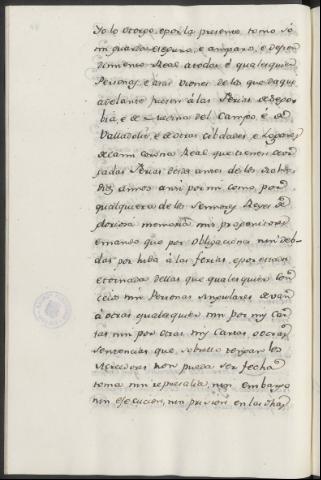 Yo lo otorgo, e por la presente tomo so
mi guarda e seguro, e amparo, e defen
dimiento Real a todas e qualesquier
Personas, e a sus vienes de los que de aqui
adelante fueren á las Ferias de Sego
bia, e de Medina del Campo é de
Valladolid, e de otras Cibdades, e Logares
de la mi corona Real que tienen otor
gadas Ferias desde antes de los
Diez annos ansi por mi como por
qualquiera de los Sennores Reyes de
gloriosa memoria mis progenitores
e mando que por obligaciones nin deb-
das por hida á las ferias, e por estada
e tornada dellas que qualesquier con
cejos nin Personas singulares devan
á otras qualesquier nin por my car
tas nin por otras my Cartas o otras
sentencias que sobrello tengan los
Acreedores non pueda ser fecha
toma nin represalia, nin embargo
nin ejecucion, nin prision en las dhas